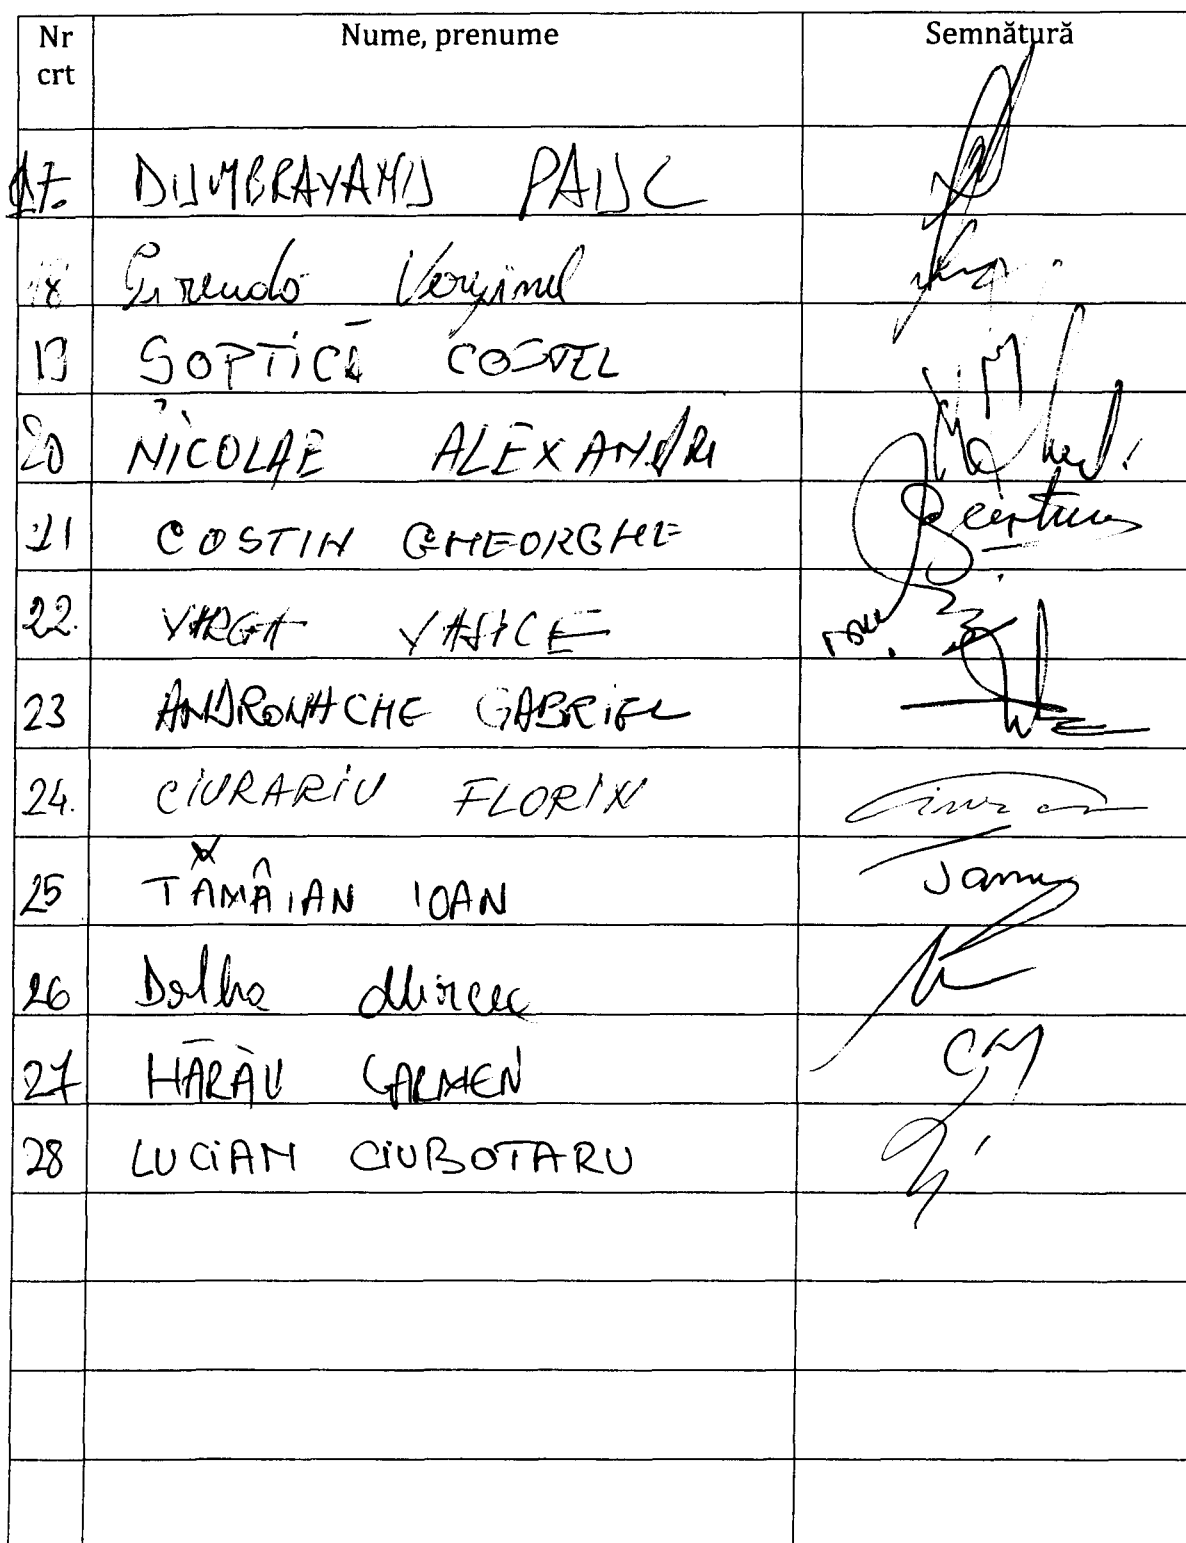 Nr crt Nume, prenume Semnătură
17. DUMBRAVANU PAUL
18 Verginel
19 ȘOPTICĂ COSTEL
20 NICOLAE ALEXANDRU
21 COSTIN GHEORGHE
22. VARGA VASILE
23 ANDRONACHE GABRIEL
24. CIURARIU FLORIN
25 TĂMÂIAN IOAN
26 Dolha Mircea
27 HĂRĂU CARMEN
28 LUCIAN CIUBOTARU